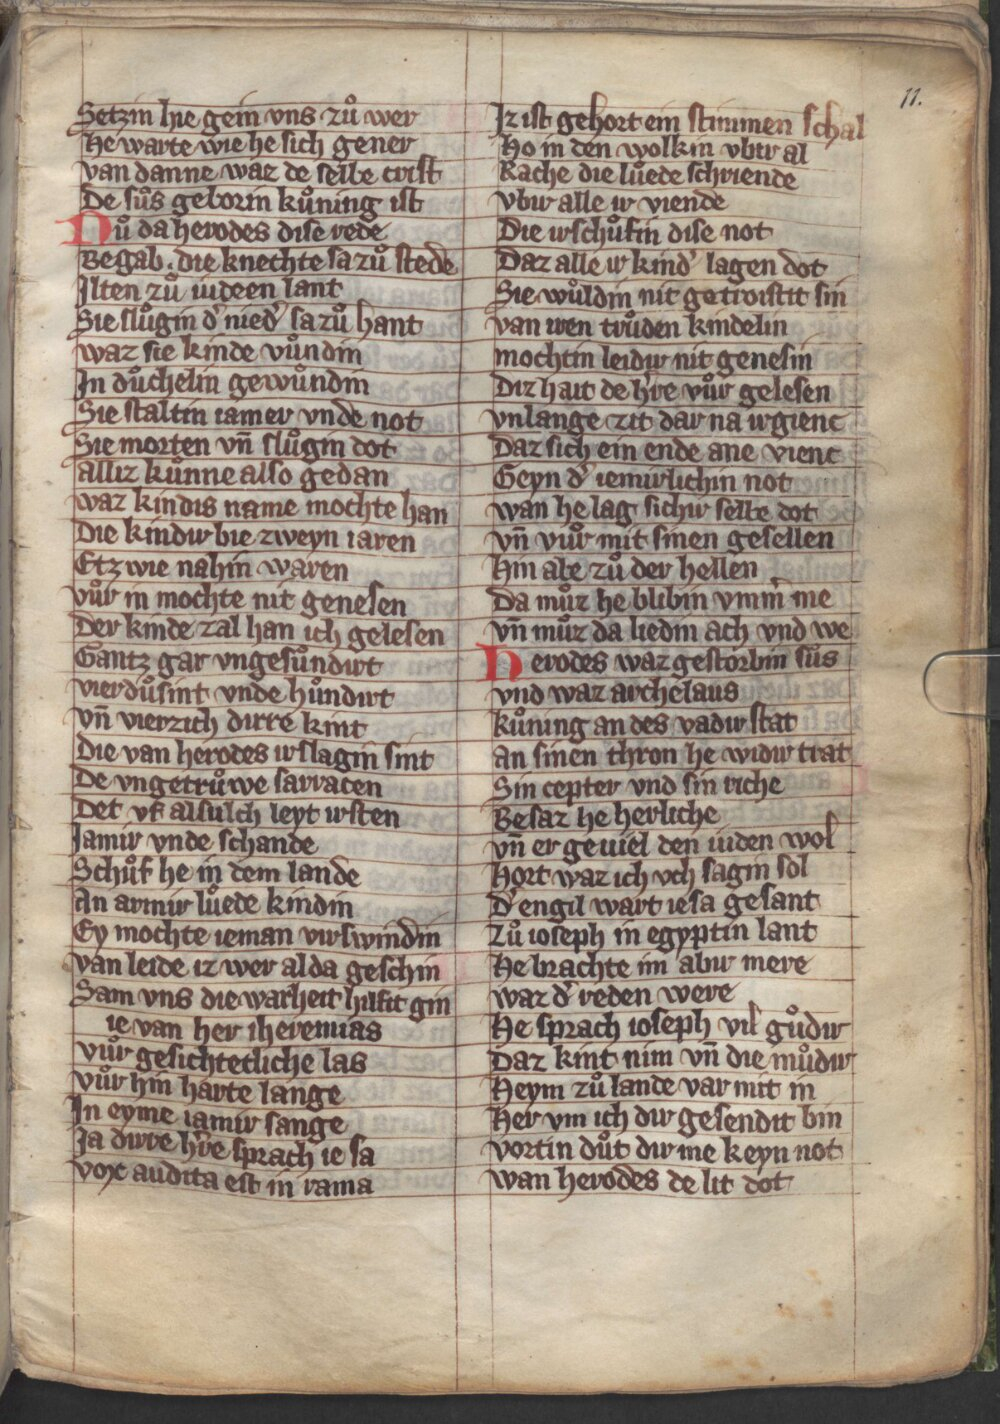 11.
Setzin hie gein vns zuͦ wer
He warte wie he sich gener
van danne waz de selbe crist
De suͦs geborin kuͦning ist
Nuͦ da herodes dise rede
Begab . die knechte sa zuͦ stede
Ilten zuͦ iudeen lant
Sie sluͦgin dʼ niedʼ sa zuͦ hant
waz sie kinde vuͦndin
In duͦchelin gewuͦndin
Sie staltin iamer vnde not
Sie morten vn̄ sluͦgin dot
alliz kuͦnne also gedan
waz kindis name mochte han
Die kindir bie zweyn iaren
Etzwie nahin waren
vuͦr in mochte nit genesen
Der kinde zal han ich gelesen
Gantz gar vngesuͦndirt
vierduͦsint vnde huͦndirt
vn̄ vierzich dirre kint
Die van herodes irslagin sint
De vngetruͦwe sarracen
Det vf alsulch leyt irsten
Iamir vnde schande
Schuͦf he in dem lande
An armir luͦede kindin
Ey mochte ieman virswindin
van leide iz wer alda geschin
Sam vns die warheit hilfit gin
ie van her iheremias
vuͦr gesichtetliche las
vuͦr hin harte lange
In eyme iamir sange
Ja dirre hʼre sprach ie sa
vox audita est in rama
Iz ist gehort ein stimmen schal
Ho in den wolkin vbir al
Rache die luͦede schriende
vbir alle ir viende
Die irschuͦfin dise not
Daz alle ir kindʼ lagen dot
Sie wuͦldin nit getroistit sin
van iren truͦden kindelin
mochtin leidir nit genesin
Diz hait de hʼre vuͦr gelesen
vnlange zit dar na irgienc
Daz sich ein ende ane vienc
Geyn dʼ iemirlichin not
wan he lag sichir selbe dot
vn̄ vuͦr mit sinen gesellen
Hin abe zuͦ der hellen
Da muͦz he blibin vmm̄ me
vn̄ muͦz da liedin ach vnd we
Herodes waz gestorbin suͦs
vnd waz archelaus
kuͦning an des vadir stat
An sinen thron he widir trat
Sin cepter vnd sin riche
Besaz he herliche
vn̄ er geuiel den iuden wol
Hort waz ich vch sagin sol
dʼ engil wart iesa gesant
zuͦ ioseph in egyptin lant
He brachte im abir mere
waz dʼ reden were
He sprach ioseph vil guͦdir
Daz kint nim vn̄ die muͦdir
Heym zuͦ lande var mit in
Her vm ich dir gesendit bin
vortin duͦt dir me keyn not
wan herodes de lit dot